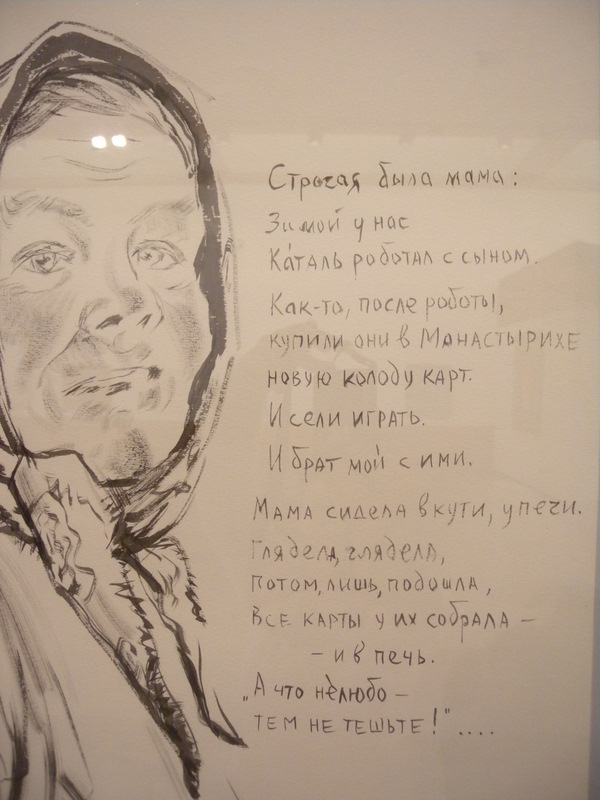 Строгая была мама:
Зимой у нас
Ка́таль роботал с сыном.
Как-то, после роботы,
купили они в Монастырихе
новую колоду карт.
И сели играть.
И брат мой с ими.
Мама сидела в кути, у печи.
Глядела, глядела,
потом, лишь, подошла,
все карты у их собрала –
– и в печь.
„А что не́любо –
тем не тешьте!"....